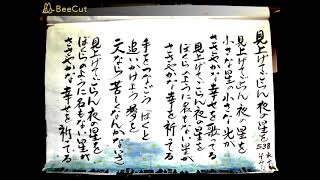 BeeCut
見上げてごらん夜の星を 538
見上げてごらん夜の星を
小さな星の小さな光が
ささやかな幸せを歌ってる
見上げてごらん夜の星を
ぼくらのように名もない星が
ささやかな幸せを祈ってる
手をつなごうぼくと
追いかけよう夢を
二人なら苦しくなんかないさ
見上げてごらん夜の星を
ぼくらのように名もない星が
ささやかな幸せを祈ってる